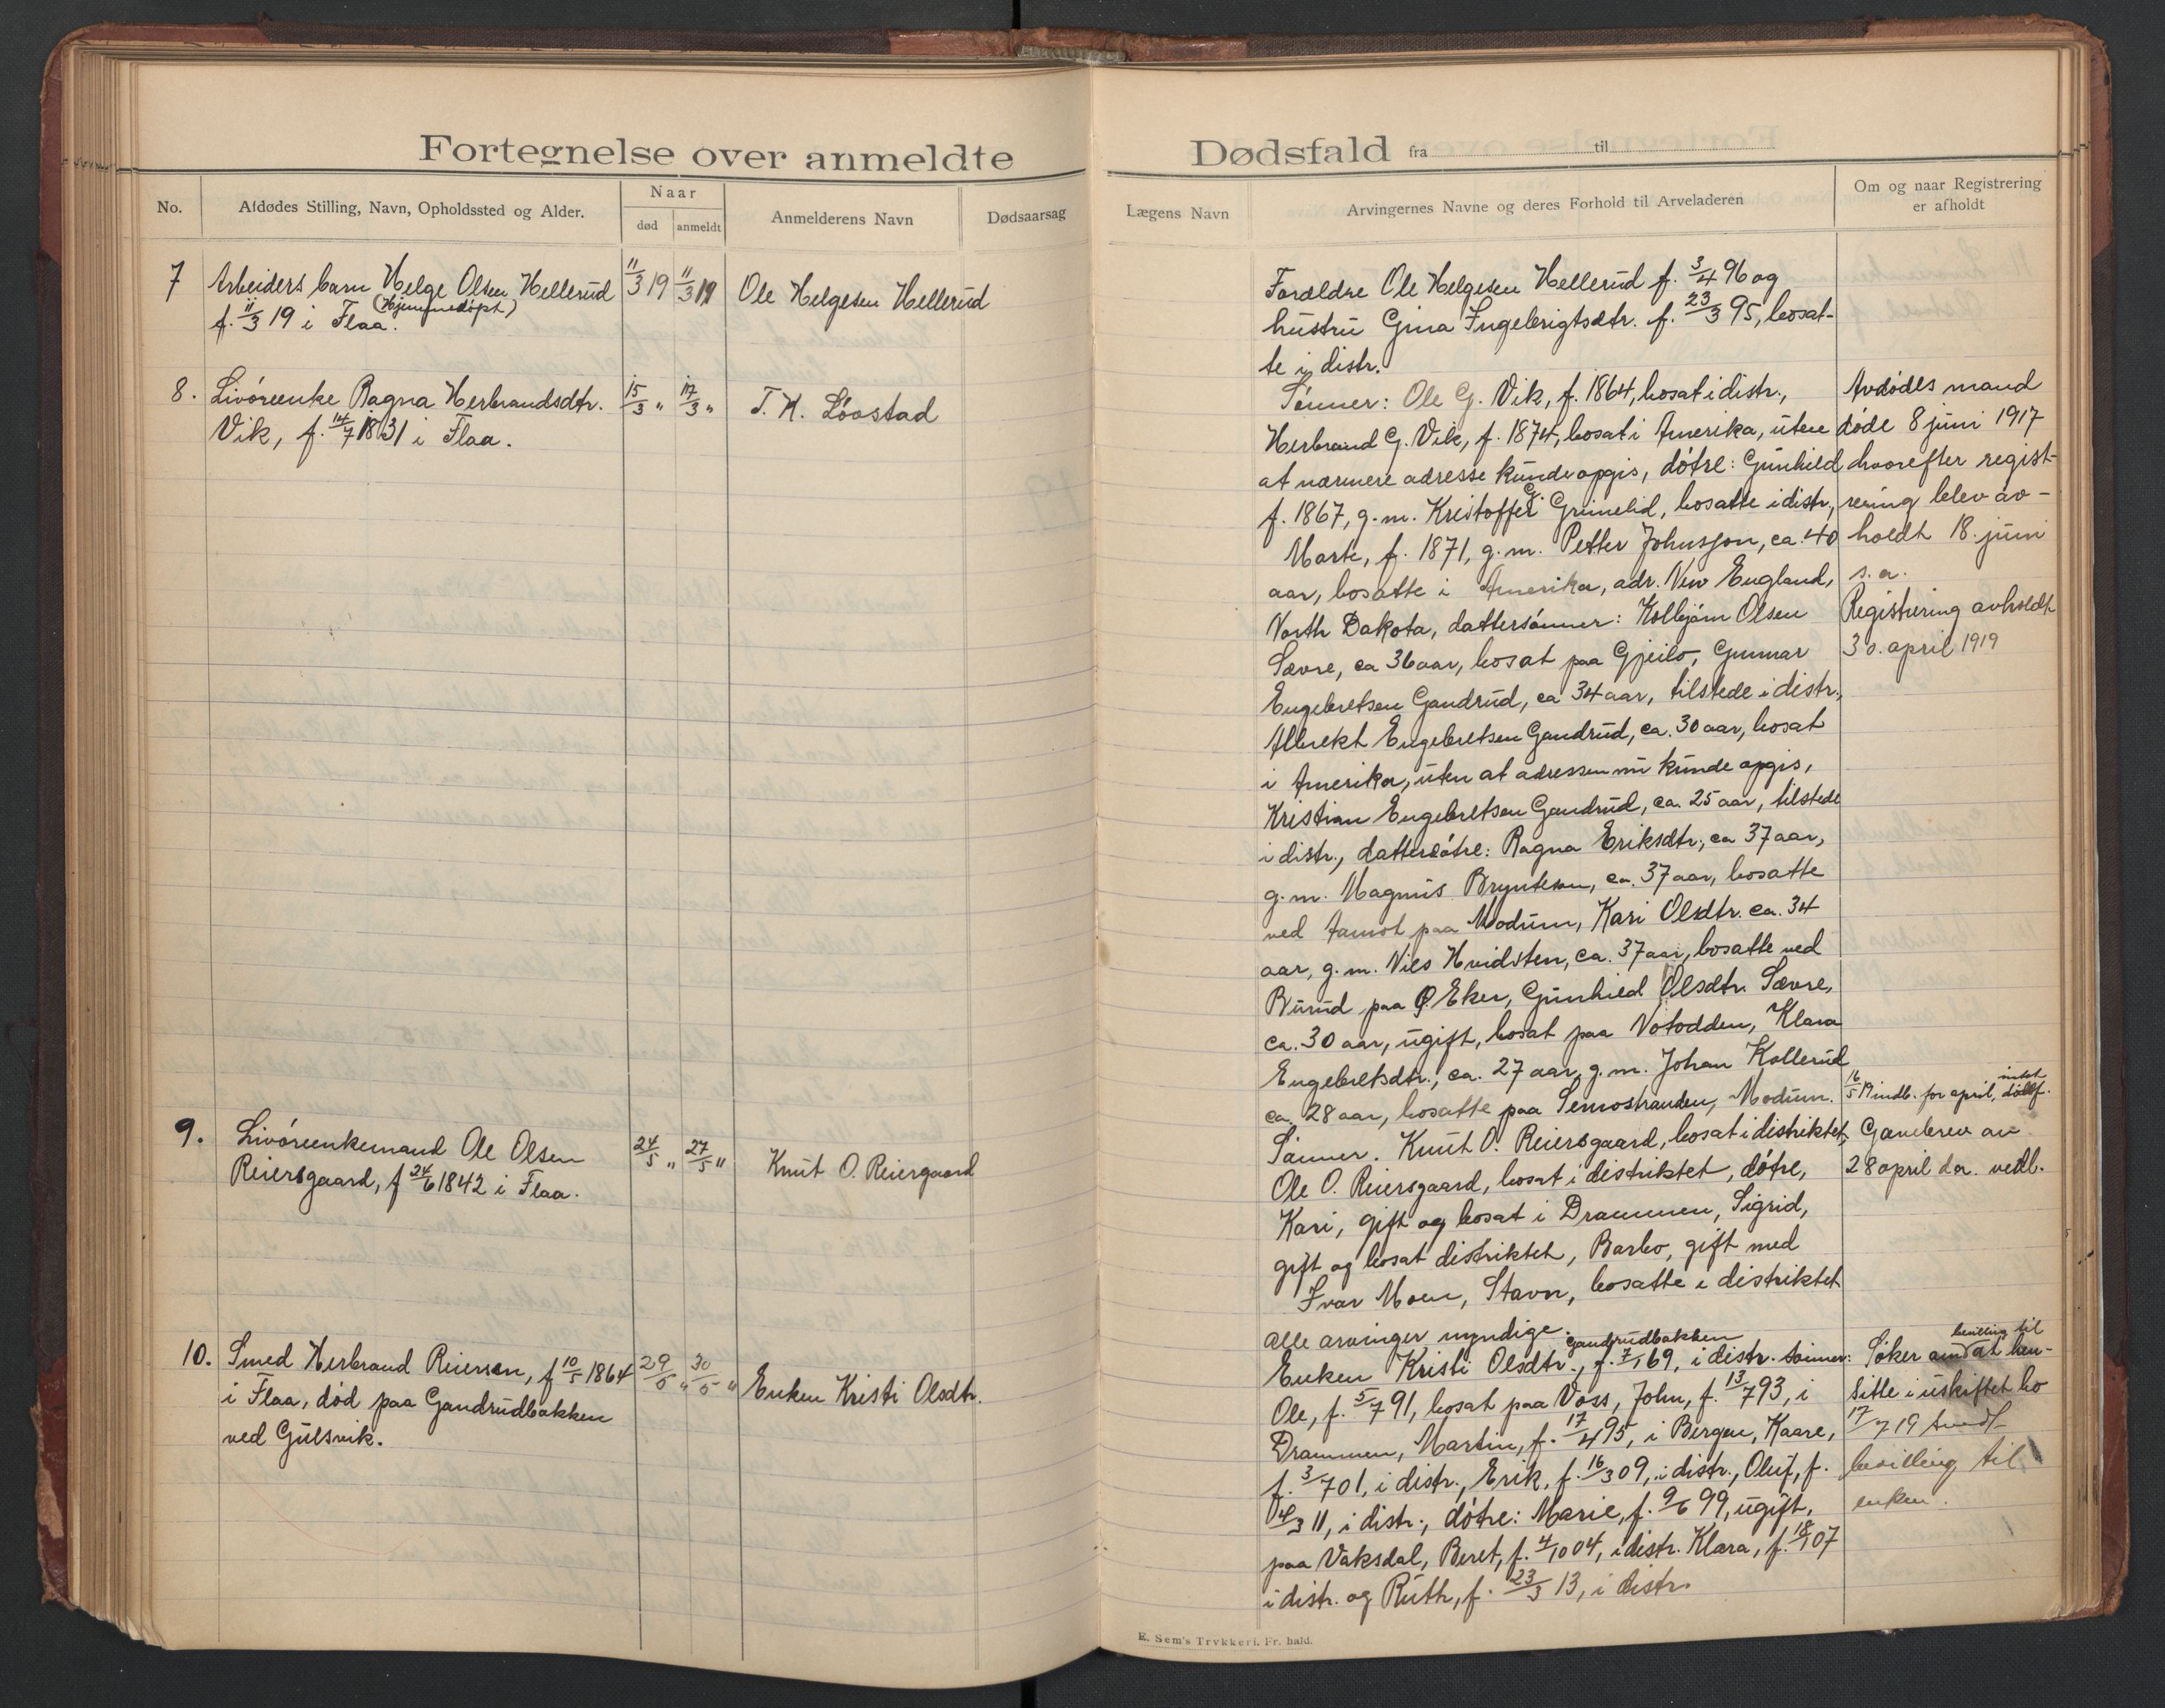 Fortegnelse over anmeldte
No.
Afdødes Stilling, Navn, Opholdssted og Alder.
Naar
død
anmeldt
Anmelderens Navn
Dødsaarsag
7 Arbeiders barn Helge Olsen Hellerud 11/3 19 11/3 19 Ole Helgesen Hellerud
(Hjemmedøpt)
f. 11/3 19 i Flaa.
8. Livøreenke Ragna Herbrandsdtr. 15/3 " 17/3 " T. K. Løvstad
Vik, f. 14/7 1831 i Flaa.
9. Livøreenkemand Ole Olsen 24/5 " 27/5 " Knut O. Reiergaard
Reiersgaard, f 24/6 1842 i Flaa.
10. Smed Herbrand Reiersen, f 10/5 1864 29/5 " 30/5 " Enken Kristi Olsdtr.
i Flaa, død paa Gandrudbakken
ved Gulsvik.
Dødsfald fra til
Lægens Navn
Arvingernes Navne og deres Forhold til Arveladeren
Om og naar Registrering
er afholdt
Forældre Ole Helgesen Hellerud f. 3/4 96 og
hustru Gina Ingebrigtsdtr. f. 23/3 95, bosat-
te i distr.
Sønner: Ole G. Vik, f. 1864, bosat i distr.,
Herbrand G. Vik, f. 1874, bosat i Amerika, uten
at nærmere adresse kunde opgis, døtre: Gunhild
f. 1867, g.m. Kristoffer G. Grimelid, bosatte i distr.,
Marte, f. 1871, g.m. Petter Johnsson, ca. 40
aar, bosatte i Amerika, adr. New England,
North Dakota, dattersønner: Kolbjørn Olsen
Sævre, ca 36 aar, bosat paa Gjeilo, Gunnar
Engebretsen Gandrud, ca 34 aar, tilstede i distr.,
Albrekt Engebretsen Gandrud, ca. 30 aar, bosat
i Amerika, uten at adressen nu kunde opgis,
Kristian Engebretsen Gandrud, ca. 25 aar, tilstede
i distr., datterdøtre: Ragna Eriksdtr., ca 37 aar,
g.m. Magnus Bryntesen, ca. 37 aar, bosatte
ved Aamot paa Modum, Kari Olsdtr. ca. 34
aar, g.m. Nils Hvidsten, ca. 37 aar, bosatte ved
Burud paa Ø. Eker, Gunhild Olsdtr. Sævre,
ca. 30 aar, ugift, bosat paa Notodden, Klara
Engebretsdtr., ca. 27 aar, g.m. Johan Kollerud
ca. 28 aar, bosatte paa Semostranden, Modum.
Sønner. Knut O. Reiersgaard, bosat i distriktet,
Ole O. Reiersgaard, bosat i distriktet, døtre,
Kari, gift og bosat i Drammen, Sigrid,
gift og bosat distriktet, Barbo, gift med
Ivar Moen, Stavn, bosatte i distriktet
Alle arvinger myndige.
Gandrudbakken
Enken Kristi Olsdtr., f. 7/1 69, i distr. sønner:
Ole, f. 5/7 91, bosat paa Voss, John, f. 13/7 93, i
Drammen, Martin, f. 17/4 95, i Bergen, Kaare,
f. 3/7 01, i distr., Erik, f. 16/3 09, i distr., Oluf, f.
14/3 11, i distr., døtre: Marie, f. 9/6 99, ugift,
paa Vaksdal, Beret, f. 4/10 04, i distr. Klara, f. 18/1 07
i distr. og Ruth, f. 23/3 13, i distr.
Avdødes mand
døde 8 juni 1917
hvorefter regist-
rering blev av-
holdt 18. juni
s. a.
Registrering avholdt
30. april 1919
16/5 19 indb. for april, intet dødsf.
Gavebrev av
28 april d.a. vedl.
bevilling til
Søker om at hen-
sitte i uskiftet bo
17/7 19 sendt
bevilling til
enken.
E. Sem's Trykkeri, Fr. hald.